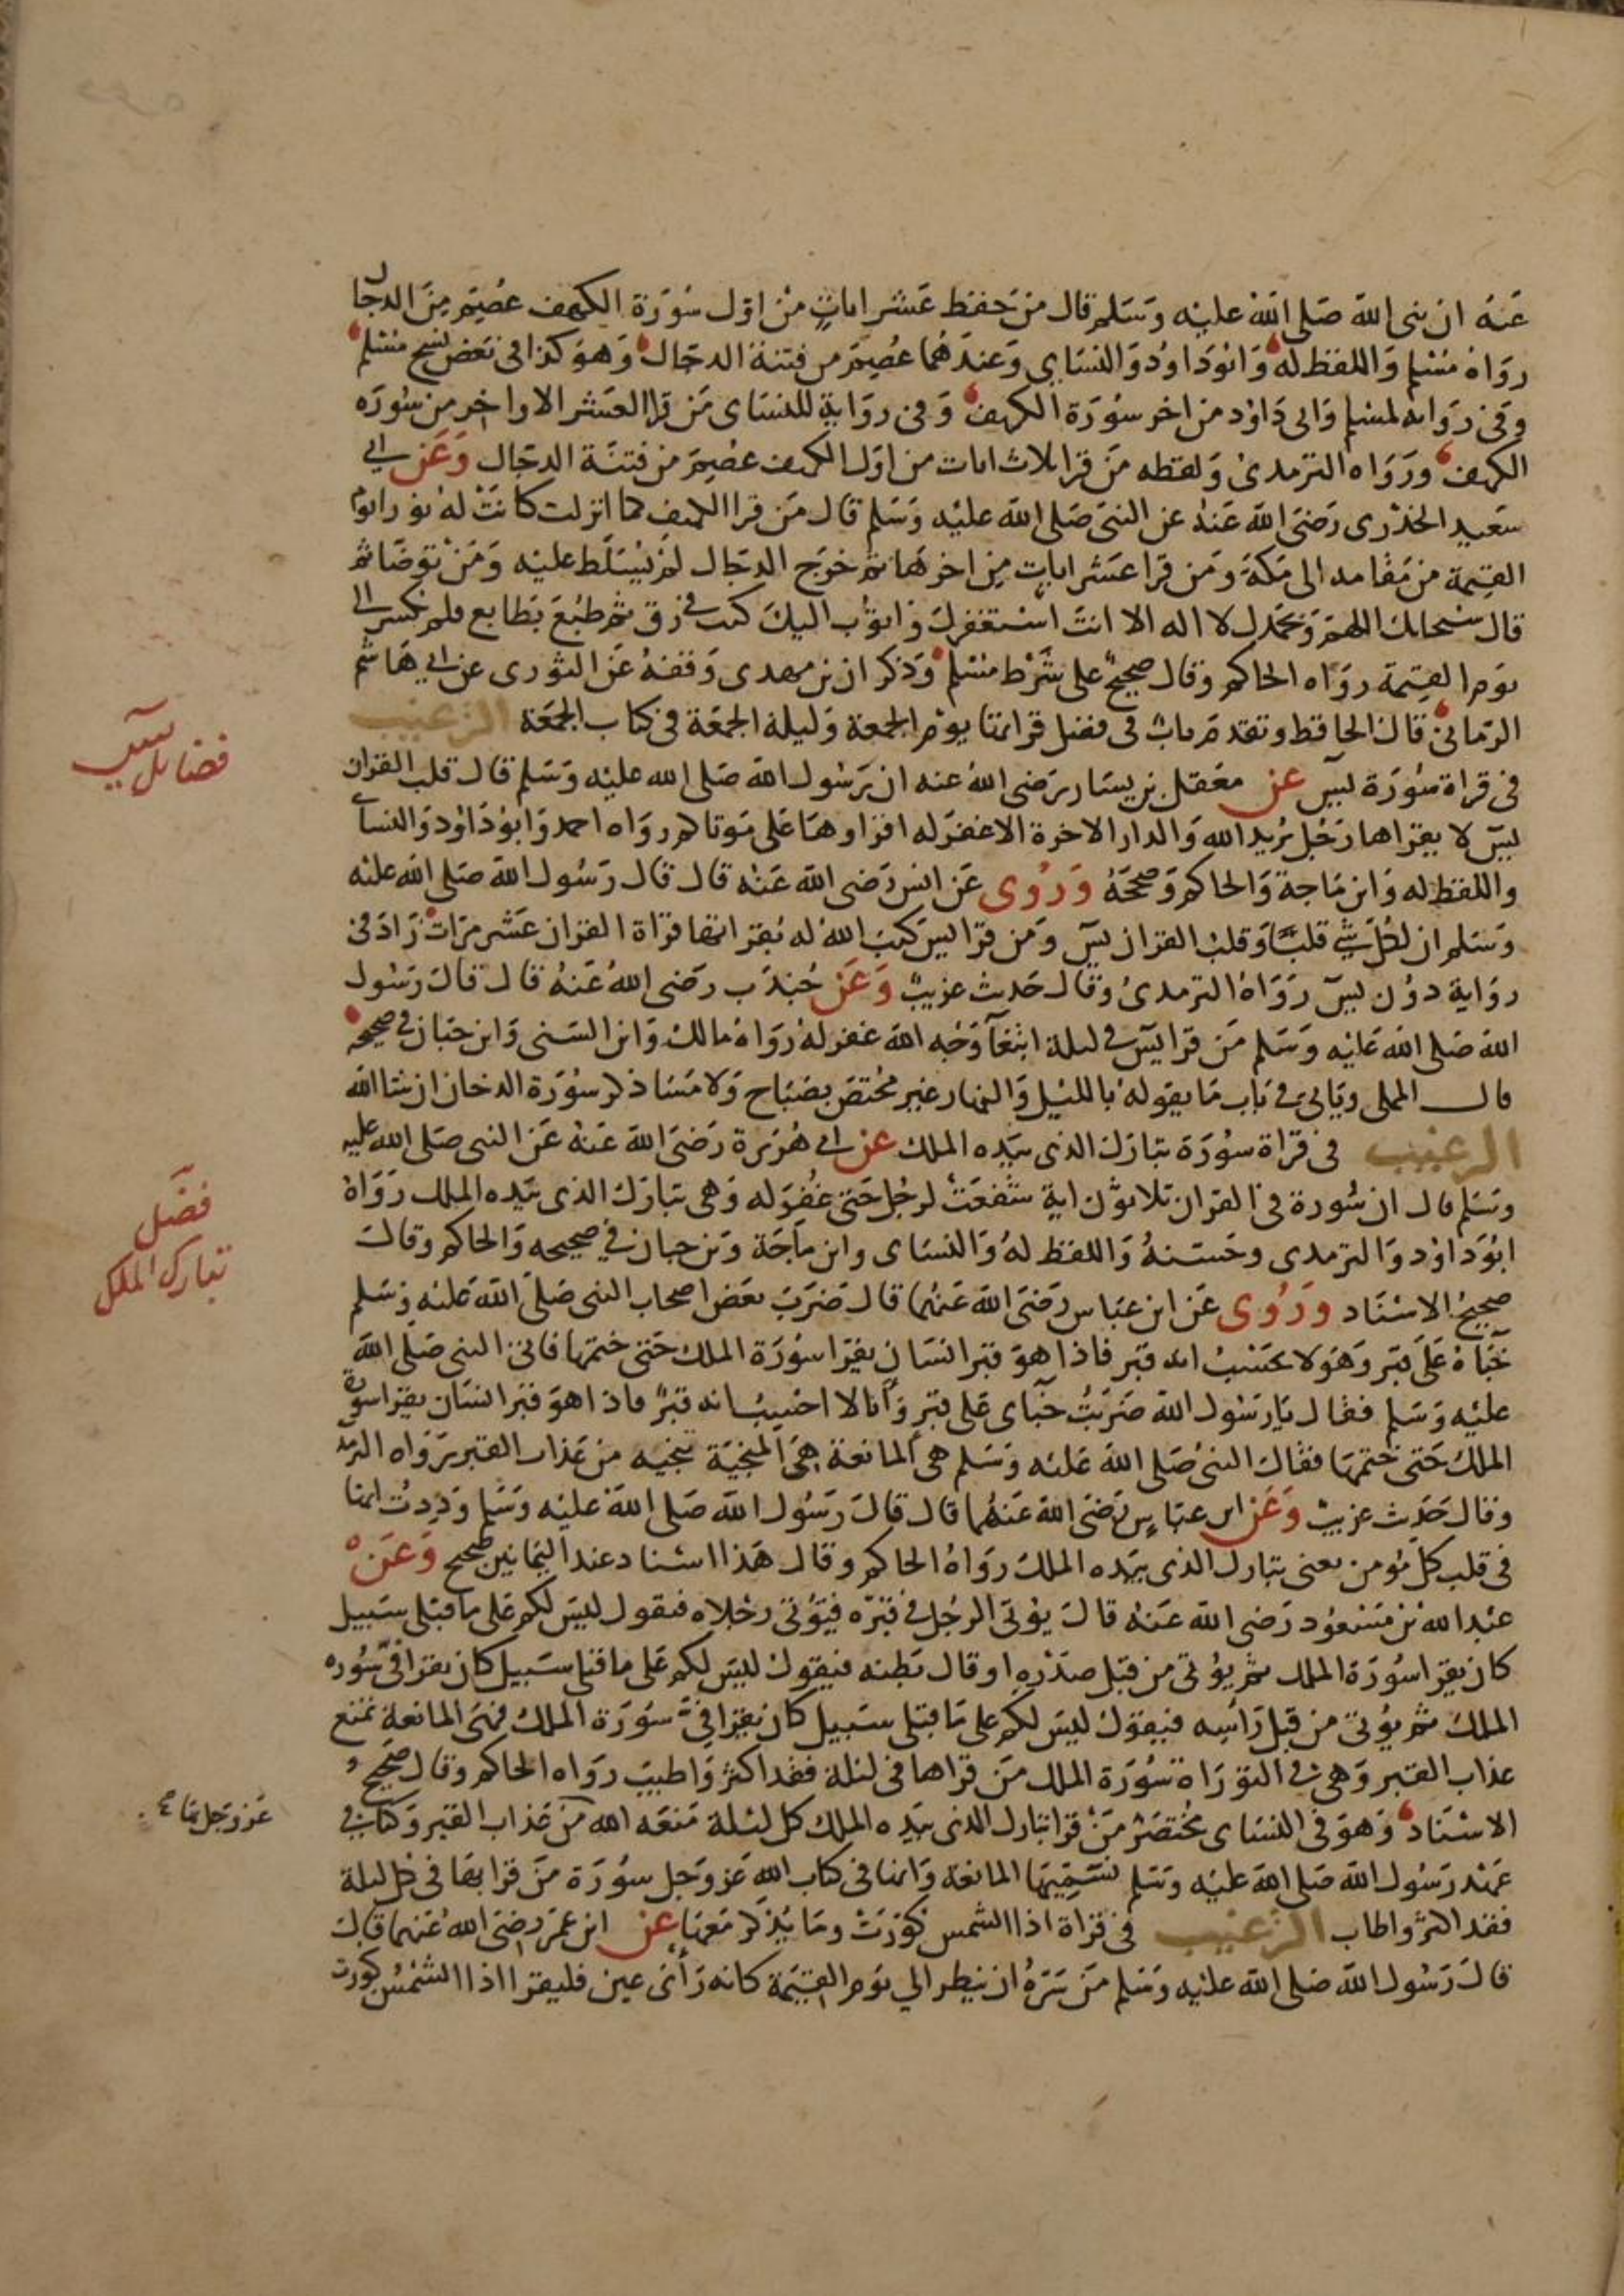 عَنهُ ان نبى الله صَلى الله عليْه وَسَلم قال من حَفظ عَشر اياتٍ من اوّل سُورَة الكهف عصِمَ مِنَ الدجال
رَوَاهُ مُسْلم وَاللفظ لهُ وَابُو دَاوُد وَالنسَاى وَعندَهُما عُصِمَ من فتنة الدجال وَهوَ كذا فى بَعض نسخ مُسْلم
وَفى رَوَايه لمسْلم وَابى دَاوُد من اخر سُورَة الكهف وَفى رِوَايةٍ للنسَاى مَن قرا العَشر الاواخر من سُورَه
الكهف وَرَوَاه الترمدىُ وَلفظه مَن قرا ثلاث ايات من اوّل الكهف عصِمَ من فتنَة الدجال وَعَن ابي
سَعيد الخدْرى رَضىَ الله عَنهُ عن النبى صَلى الله عليْه وَسَلم قال مَن قرا الكهف كما انزلت كانَتْ لهُ نورا يوم
القيمة من مَقامه الى مَكة وَمَن قرا عَشر اياتٍ مِن اخرهَا ثم خرَج الدجال لم يُسَلط عليْه وَمَن توضا ثم
قال سُبحانك اللهم وَبحَمدك لا اله الا انتَ اسْتغفركَ وَاتوب اليكَ كتب فى رق ثم طبعَ بطابع فلم يكسر الى
يَوم القيمة رَوَاه الحاكم وقال صحيحٌ على شَرْط مُسْلم وَذكر ان بن مهدى وَقفهُ عَن الثورى عن ابي هَاشم
الرّمانى قال الحافظ وتقدم بابٌ فى فضل قراتها يوْم الجمعة وَليلة الجمعَة فى كتاب الجمعَة الترغيب
فى قراة سُورَة يسٓ عن معْقل بن يسَار رَضى اللهُ عنه ان رَسُول الله صَلى الله عليْه وَسَلم قال قلب القران
يسٓ لا يقراها رَجُل يُريد الله وَالدار الاخرة الا غفرَ له اقراوهَا عَلى مَوتاكم رَوَاه احمد وَابُو دَاوُد وَالنساي
واللفظ له وَابن مَاجة وَالحاكم وَصححهُ وَرُوى عَن انس رَضى الله عَنْه قال قال رَسُول الله صَلى الله عليْه
وَسَلم ان لكل شىٍ قلبًا وَقلبُ القران يسٓ وَمَن قرا يسٓ كتبَ اللهُ له بقراتها قراة القران عَشر مَرّات زادَ فى
رِوَاية دوُن يسٓ رَوَاهُ الترمدىُ وقال حَديث غريبٌ وَعَن جُندَب رضى اللهُ عَنهُ قال قالَ رَسُول
الله صَلى الله عَليْه وَسَلم مَن قرا يسٓ فى ليلة ابتغَآ وَجْه الله غفر لهُ رَوَاهُ مالك وَابن السّنى وَابن حبّان فى صحيحه
قال المملى وياتى فى بَاب مَا يقولهُ بالليْل وَالنهار غير مختص بصَبَاح وَلا مَسَا ذكر سُورَة الدخان ان شا الله
الترغيب فى قراة سُورَة تبارَك الذى بيَده الملك عن ابي هُرَيرة رَضىَ الله عَنهُ عَن النبى صَلى الله عليه
وَسَلم قال ان سُورة فى القران ثلاثون ايةً شفعَتْ لرجُل حَتى غفر له وَهى تبارَك الذى بيَده الملك رَوَاهُ
ابُو دَاوُد وَالترمدى وحَسّنهُ وَاللفظ لهُ وَالنسَاى وابن مَاجَة وَبن حبان فى صحيحه وَالحاكم وقالَ
صحيحُ الاسْنَاد وَرُوى عَن ابن عبَاس رَضىَ الله عَنهُما قال ضَرَبَ بعَض اصحاب النبى صَلى الله عَليْه وَسَلم
خبَاهُ عَلى قبر وَهوَ لا يحسبُ انه قبر فاذا هوَ قبر انسَان يقرا سُورَة الملك حَتى ختمها فاتى النبى صَلى الله
عليْه وَسَلم فقال يا رَسُول الله ضَرَبْتُ خبَاى عَلى قبرٍ وَانا لا احْسِبُ انه قبرٌ فاذا هوَ قبر انسَان يقرا سورة
الملك حَتى ختمها فقالَ النبىُ صَلى الله عَليْه وَسَلم هىَ المانعة هىَ المنجيَة تنجيه من عَذاب القبر رَوَاه الترمد
وقال حَديث غريبٌ وَعَن ابن عبَاسٍ رَضىَ الله عَنهُما قال قالَ رَسُول الله صَلى الله عليْه وَسَلم وَدِدتُ انها
فى قلب كل مُومن يعنى تبارك الذى بيَده الملك رَوَاهُ الحاكم وقال هَذا اسْناد عند اليَمانيين صحيح وَعَنْ
عبْد الله بن مَسْعُود رَضى الله عَنهُ قالَ يؤتى الرجُل فى قبرِه فيؤتى رِجْلاه فتقول ليسَ لكم عَلى ما قبلى سَبيل
كان يقرا سُورَة الملك ثم يؤتى من قبل صدْرِه او قال بَطنه فيقول ليسَ لكم عَلى ما قبلى سَبيل كان يقرا فىّ سُوره
الملك ثم يؤتى من قبل رَاسِه فيقولُ ليسَ لكم على مَا قبلى سَبيل كان يقرا فىّ سُورَة الملك فهىَ المانعة تمنع
عذاب القبر وَهى فى التوْرَاة سُورَة الملك مَن قراها فى ليْلة فقد اكثر وَاطيبَ رَوَاه الحاكم وقال صحيحُ
الاسْنَاد وَهوَ فى النسَاى مختصَرٌ مَنْ قرا تبارك الذى بيَده الملك كل ليْلة مَنعَه الله من عَذاب القبر وَكنا فى
عَهْد رَسُول الله صَلى الله عليْه وَسَلم نسَمّيهَا المانعة وَانها فى كتاب الله عَز وَجَل سورَة مَن قرا بهَا فى كل ليلة
فقد اكثرَ واطاب الترغيب فى قراة اذا الشمس كوّرَتْ وما يُذكر مَعهَا عن ابن عُمَرَ رضىَ الله عَنهما قالَ
قالَ رَسُول الله صَلى الله عليْه وَسَلم مَن سَرّهُ ان ينظر الي يَوم القيمَة كانه رَأى عين فليقرا اذا الشمْسُ كورت
فضايل يسٓ
فضل
تبارك الملك
عَز وجَل